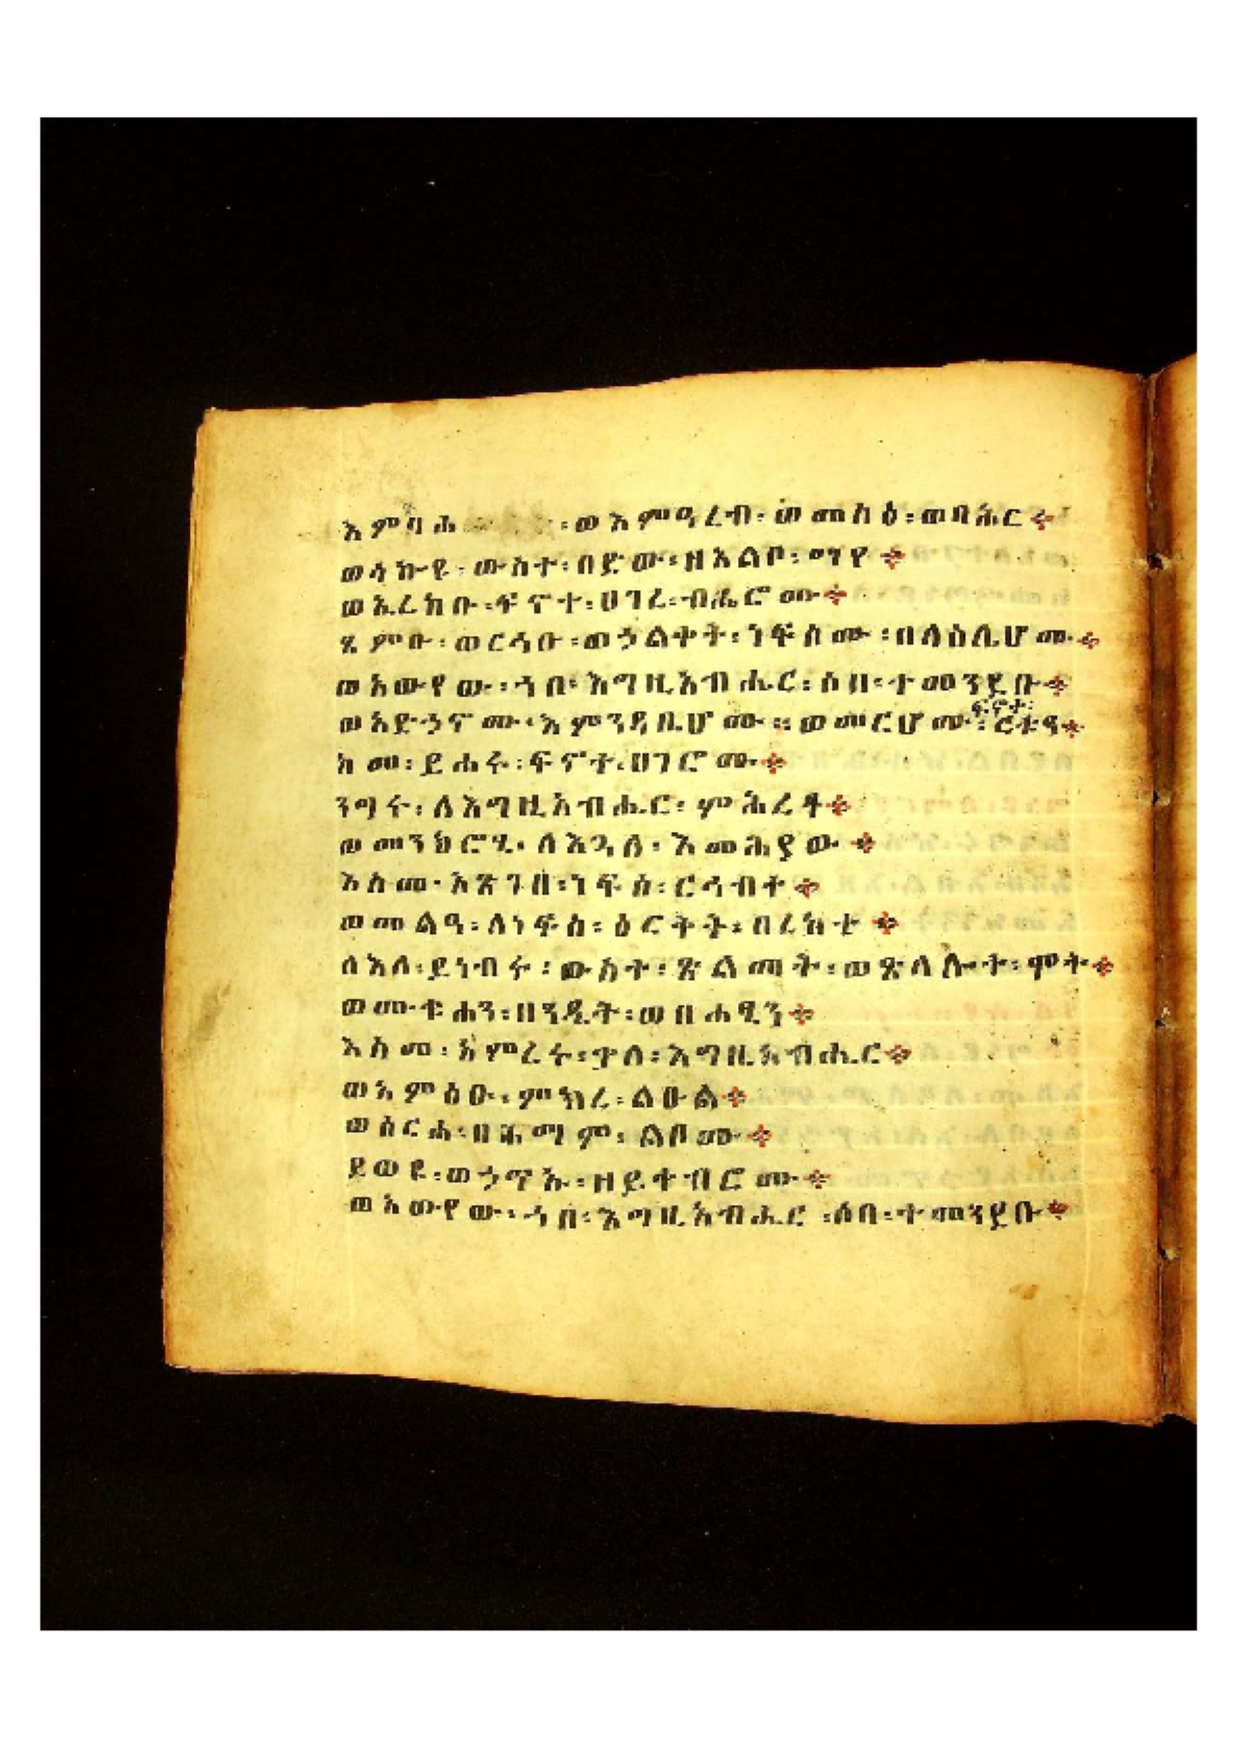 እምባሕ ፡ ወእምዓረብ ፡ ወመስዕ ፡ ወባሕር ፨
ወሳኩዩ ፡ ውስተ ፡ በድው ፡ ዘአልቦ ፡ ማየ ፨
ወኢረክቡ ፡ ፍኖተ ፡ ሀገረ ፡ ብሔሮሙ ፨
ጼምዑ ፡ ወርኅቡ ፡ ወኃልቀት ፡ ነፍሶሙ ፡ በላስሊሆሙ ፨
ወአውየው ፡ ኀበ ፡ እግዚአብሔር ፡ ሶበ ፡ ተመንደቡ ፨
ወአድኃኖሙ ፡ እምንዳቤሆሙ ። ወመርሆሙ ፡ ፍኖተ ፡ ርቱዓ ፨
ከመ ፡ ይሖሩ ፡ ፍኖተ ፡ ሀገሮሙ ፨
ንግሩ ፡ ለእግዚአብሔር ፡ ምሕረቶ ፨
ወመንክሮሂ ፡ ለእጓለ ፡ እመሕያው ፨
እስመ ፡ አጽገበ ፡ ነፍሰ ፡ ርኅብተ ፨
ወመልዓ ፡ ለነፍስ ፡ ዕርቅት ፡ በረከተ ፨
ለእለ ፡ ይነብሩ ፡ ውስተ ፡ ጽልመት ፡ ወጽላሎተ ፡ ሞት ፨
ወሙቁሐን ፡ በንዴት ፡ ወበሐፂን ፨
እስመ ፡ አምረሩ ፡ ቃለ ፡ እግዚአብሔር ፨
ወአምዕዑ ፡ ምክረ ፡ ልዑል ፨
ወሰርሐ ፡ በሕማም ፡ ልቦሙ ፨
ደወዩ ፡ ወኃጥኡ ፡ ዘይተብሮሙ ፨
ወአውየው ፡ ኀበ ፡ እግዚአብሔር ፡ ሶበ ፡ ተመንደቡ ፨